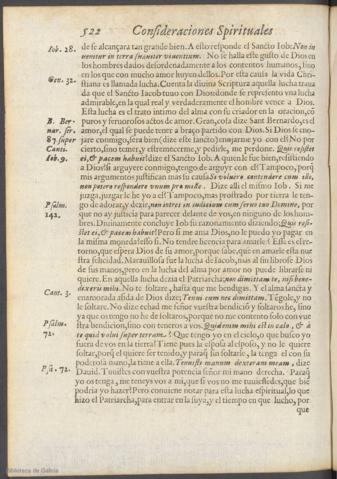 522 Consideraciones Spirituales
Iob. 28. de se alcançara tan grande bien. A esto responde el Sancto Iob: Non in
uenitur in terra suauiter viuentium. No se halla este gusto de Dios en
los hombres dados desordenadamente a los contentos humanos, sino
en los que con mucho amor huyen dellos. Por esta causa la vida Chri-
Gen. 32. stiana es llamada lucha. Cuenta la diuina Scriptura aquella lucha traua
da que el Sancto Iacob tuuo con Dios donde se represento vna lucha
admirable, en la qual real y verdaderamente el hombre vence a Dios.
Esta lucha es el trato intimo del alma con su criador en la oracion, cõ
B. Ber- puros y feruorosos actos de amor. Gran, cosa dize Sant Bernardo, es el
nar. ser. amor, el qual se puede tener a braço partido con Dios. Si Dios se eno-
87. super jare conmigo, sera bien (dize este sancto) enojarme yo con el? No por
Canti. cierto, sino temer, y estremecerme, y pedirle, me perdone. Quis restitit
Iob. 9. ei, & pacem habuit? dize el Sancto Iob. A quien le fue bien, resistiendo
a Dios? si arguyere conmigo, tengo de arguyr con el? Tampoco, porq̃
mis argumentos justifican mas su causa. Si voluero contendere cum illo,
non potero respondere vnum pro mille. Dize alli el mismo Iob. Si me
juzga, juzgar le he yo a el? Tampoco, mas prostrado por tierra le ten-
Psalm. go de adorar, y dezir, non intres in iudicium cum seruo tuo Domine, por
142. que no ay justicia para parecer delante de vos, en ninguno de los hom-
bres. Diuinamente concluye Iob su razonamiento diziendo: Quis resi-
stet ei, & pacem habuit? Pero si me ama Dios, no le puedo yo pagar en
la misma moneda? esso si. No tendre licencia para amarle? Esse es el re-
torno, que espera Dios de su amor, porque sabe, que en amarle esta nue
stra felicidad. Marauillosa fue la lucha de Iacob, mas al fin librose Dios
de sus manos, pero en la lucha del alma por amor no puede librarse ni
quiere. En aquella lucha dezia el Patriarcha, non dimittam te, nisi bene-
dixeris mihi. No te soltare, hasta que me bendigas. Y el alma sancta y
Cant. 3. enamorada asida de Dios dize, Tenui eum nec dimittam. Tẽgole, y no
le soltare. No dize echad me señor vuestra bendiciõ y soltaros he, sino
ya que os tengo no he de soltaros, porque no me contento solo con vue
Psalm. stra bendicion, sino con teneros a vos. Quid enim mihi est in cælo, & à
72. te quid volui super terram? Que tengo yo en el cielo, o que busco yo
fuera de vos en la tierra? Tiene pues la esposa al esposo, y no le quiere
soltar, porq̃ el quiere ser tenido, y paraq̃ sin soltarle, la tenga el con su
Psa. 72. poderosa mano, la tiene a ella. Tenuisti manum dexteram meam, dize
Dauid. Tuuistes con vuestra potencia señor mi mano derecha. Paraq̃
yo os tenga, me teneys vos a mi, que si vos no me tuuiessedes, que biẽ
podria yo hazer? Pero conuiene notar para esta lucha espiritual, lo que
hizo el Patriarcha, para entrar en la suya, y el tiempo en que lucho, por
que
Biblioteca de Galicia